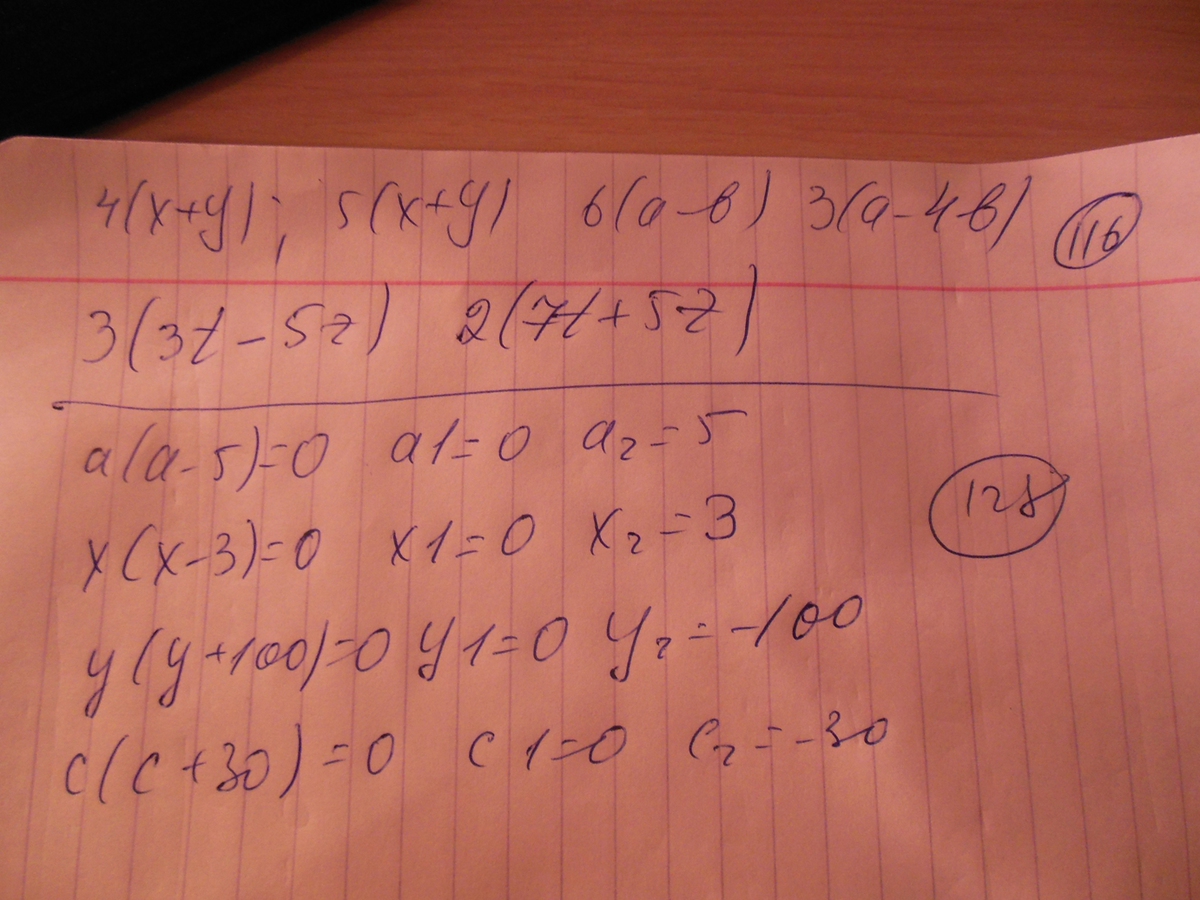 4(x+y); 5(x+y) 6(a-b) 3(a-4b) 116
3(3t-5z) 2(7t+5z)
a(a-5)=0 a1=0 a₂=5
128
x(x-3)=0 x1=0 x₂=3
y(y+100)=0 y1=0 y₂=-100
c(c+30)=0 c1=0 c₂=-30